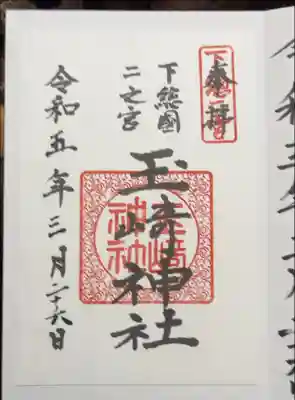 奉拝
下総國
二之宮
玉﨑神社
令和五年三月二十六日